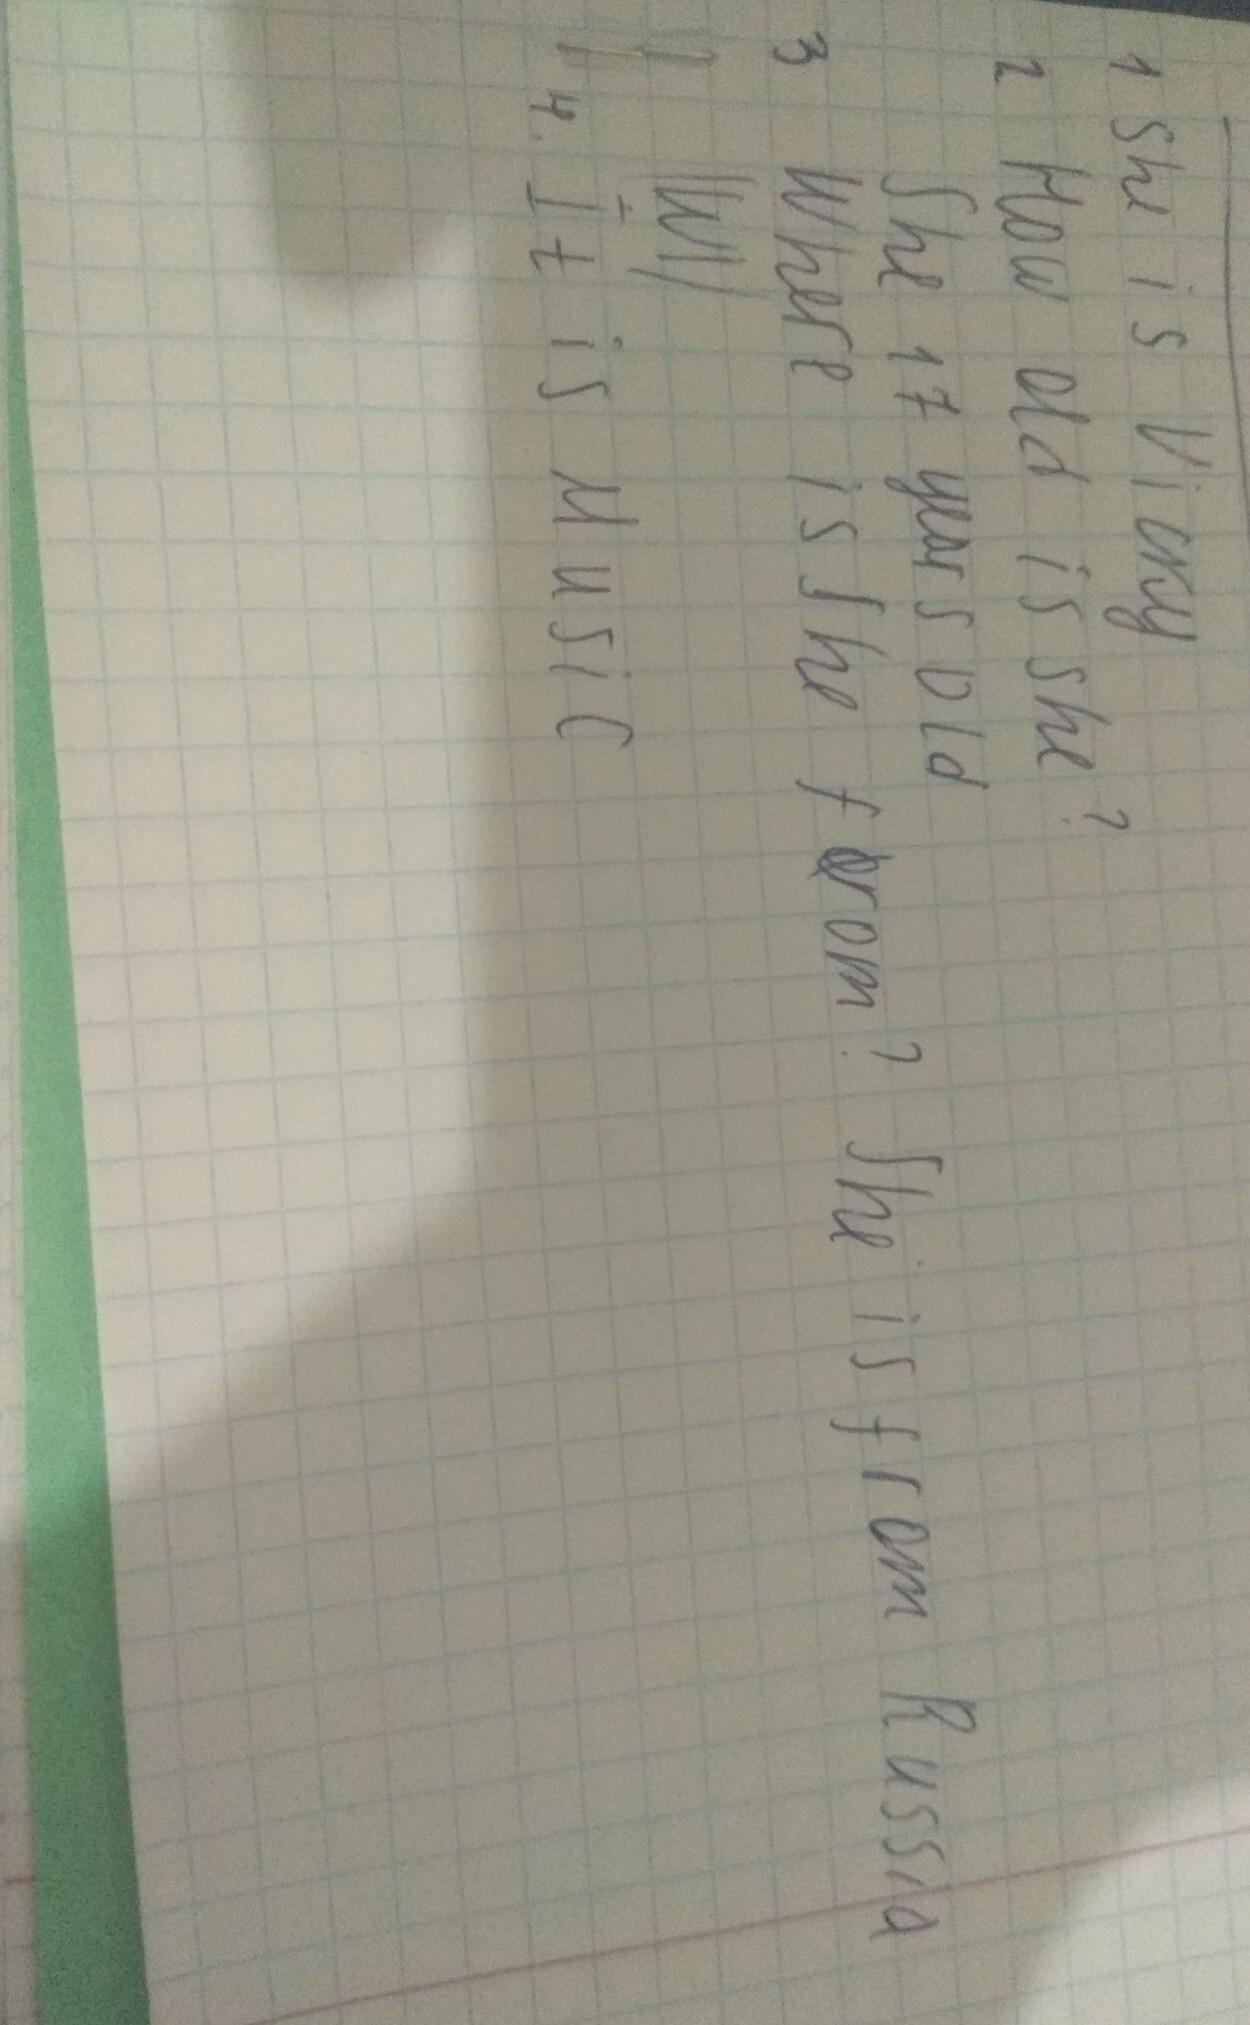 1 She is Vicky
2 How old is she?
She 17 years old
3 Where is She from? She is from Russia
4. It is Music